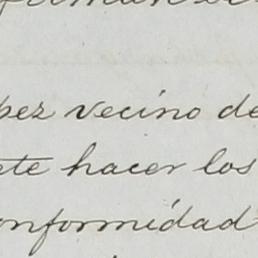 pez vecino de
ete hacer los
onformidad